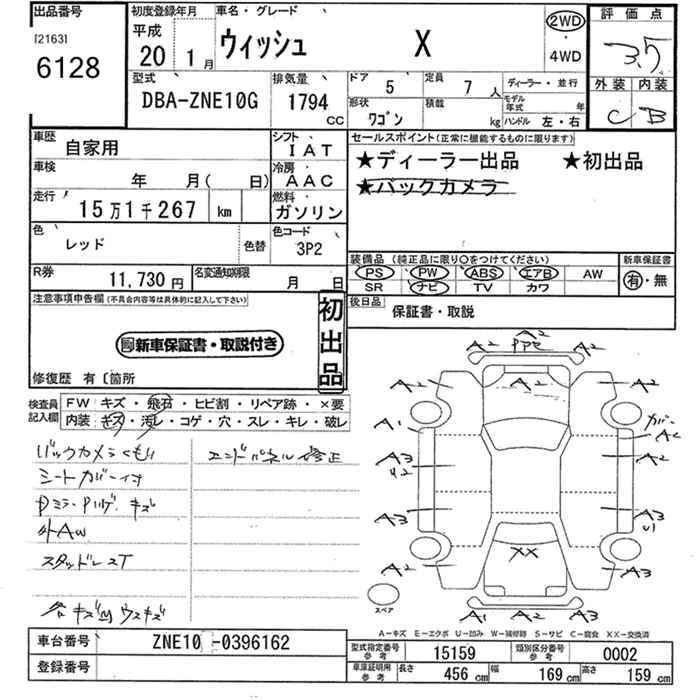 出品番号 初度登録年月 車名・グレード 評価点
[2163] 平成 2WD
6128 20年 1月 ウィッシュ X 4WD 3.5
型式 排気量 ドア 5 定員 7人 ディーラー・並行 外装 内装
DBA-ZNE10G 1794 CC 形状 ワゴン 積載 kg モデル年式 年 C B
ハンドル 左・右
車歴 自家用 シフト IAT セールスポイント(正常に機能するものに限ります)
車検 年 月( 日) 冷房 AAC ★ディーラー出品 ★初出品
走行 15万1千267 km 燃料 ガソリン ★バックカメラ
色 レッド 色替 色コード 3P2
装備品(純正品に限り○をつけてください) 新車保証書
R券 11,730円 名変通知期限 月 日 PS PW ABS エアB AW 有・無
SR ナビ TV カワ
注意事項申告欄(不具合内容等は具体的に記入して下さい) 初出品 後日品 保証書・取説
新車保証書・取説付き
修復歴 有〔箇所
検査員記入欄 FW キズ・飛石・ヒビ割・リペア跡・×要
内装 キズ・汚レ・コゲ・穴・スレ・キレ・破レ
バックカメラくもり エンドパネル修正
シートカバー付
DミラーPハゲ キズ
外AW
スタッドレスT
A2 A2 PP2 A2
A2 A2
A1 カバー A2
A3 U2 A2
A3 A3 U1
A2 XX A3
スペア
A1 A2
A-キズ E-エクボ U-凹み W-補修跡 S-サビ C-腐食 XX-交換済
車台番号 ZNE10 -0396162 型式指定番号 参考 15159 類別区分番号 参考 0002
登録番号 車庫証明用 参考 長さ 456 cm 幅 169 cm 高さ 159 cm